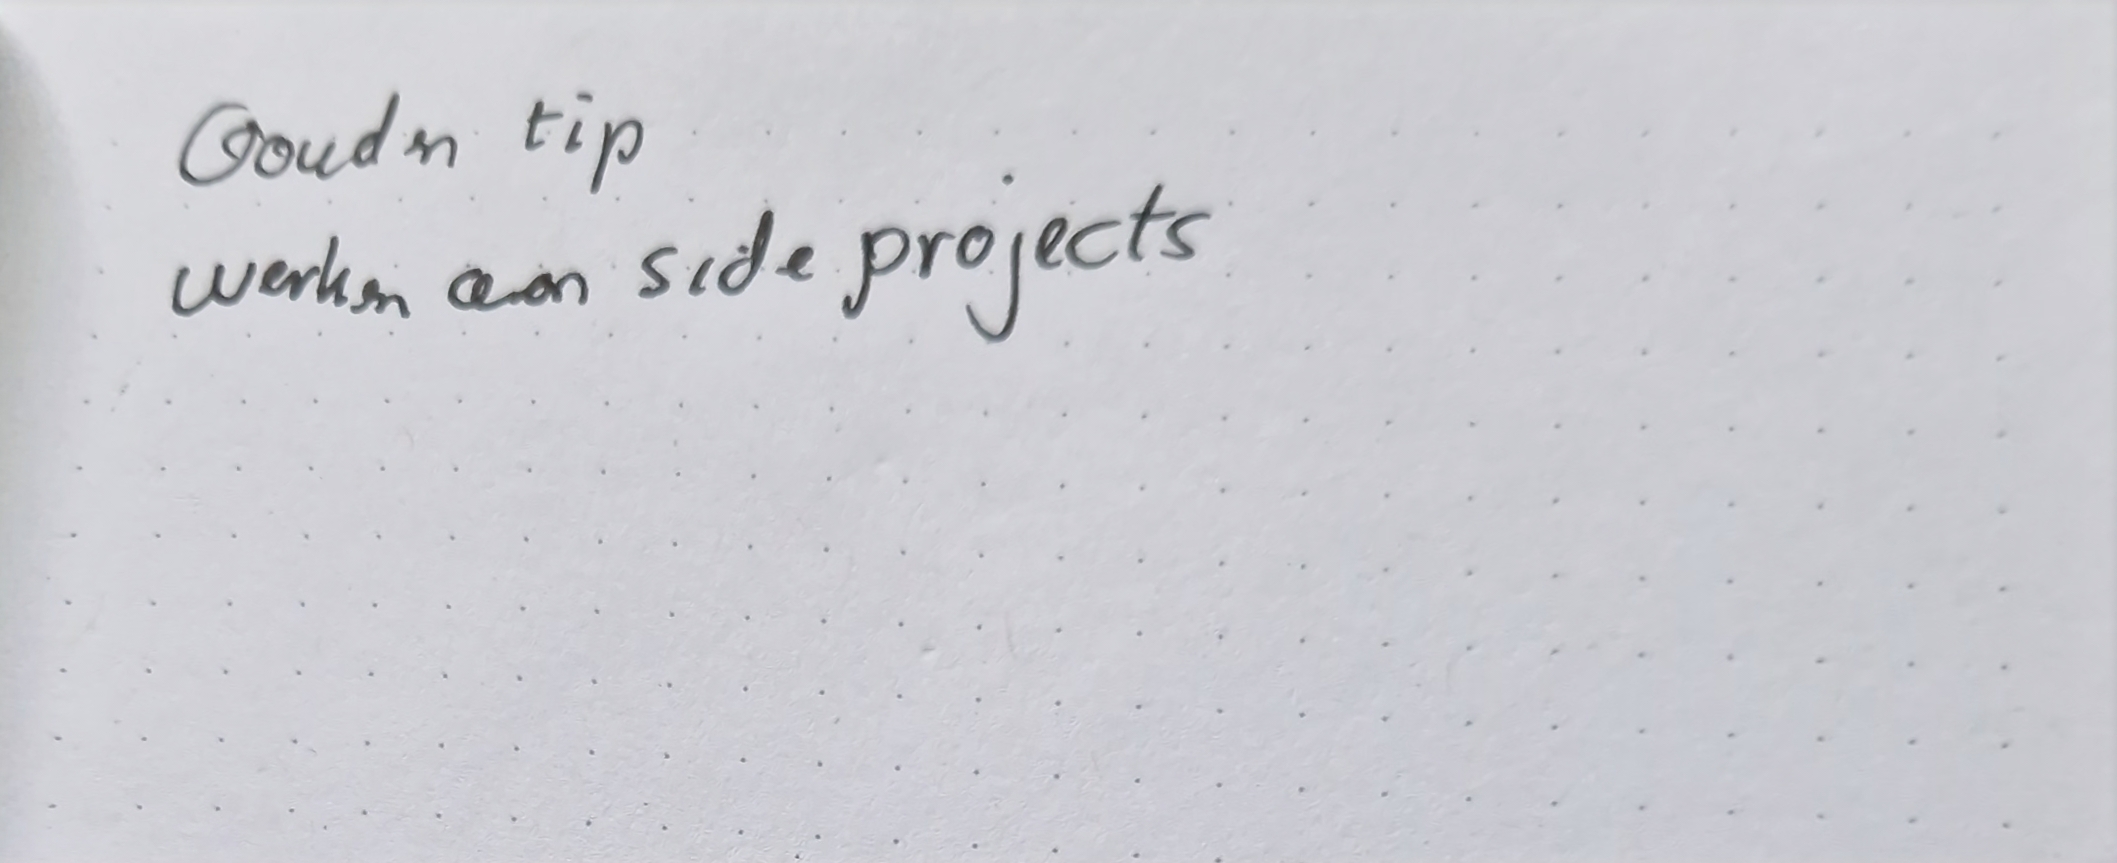 Gouden tip
werken aan side projects